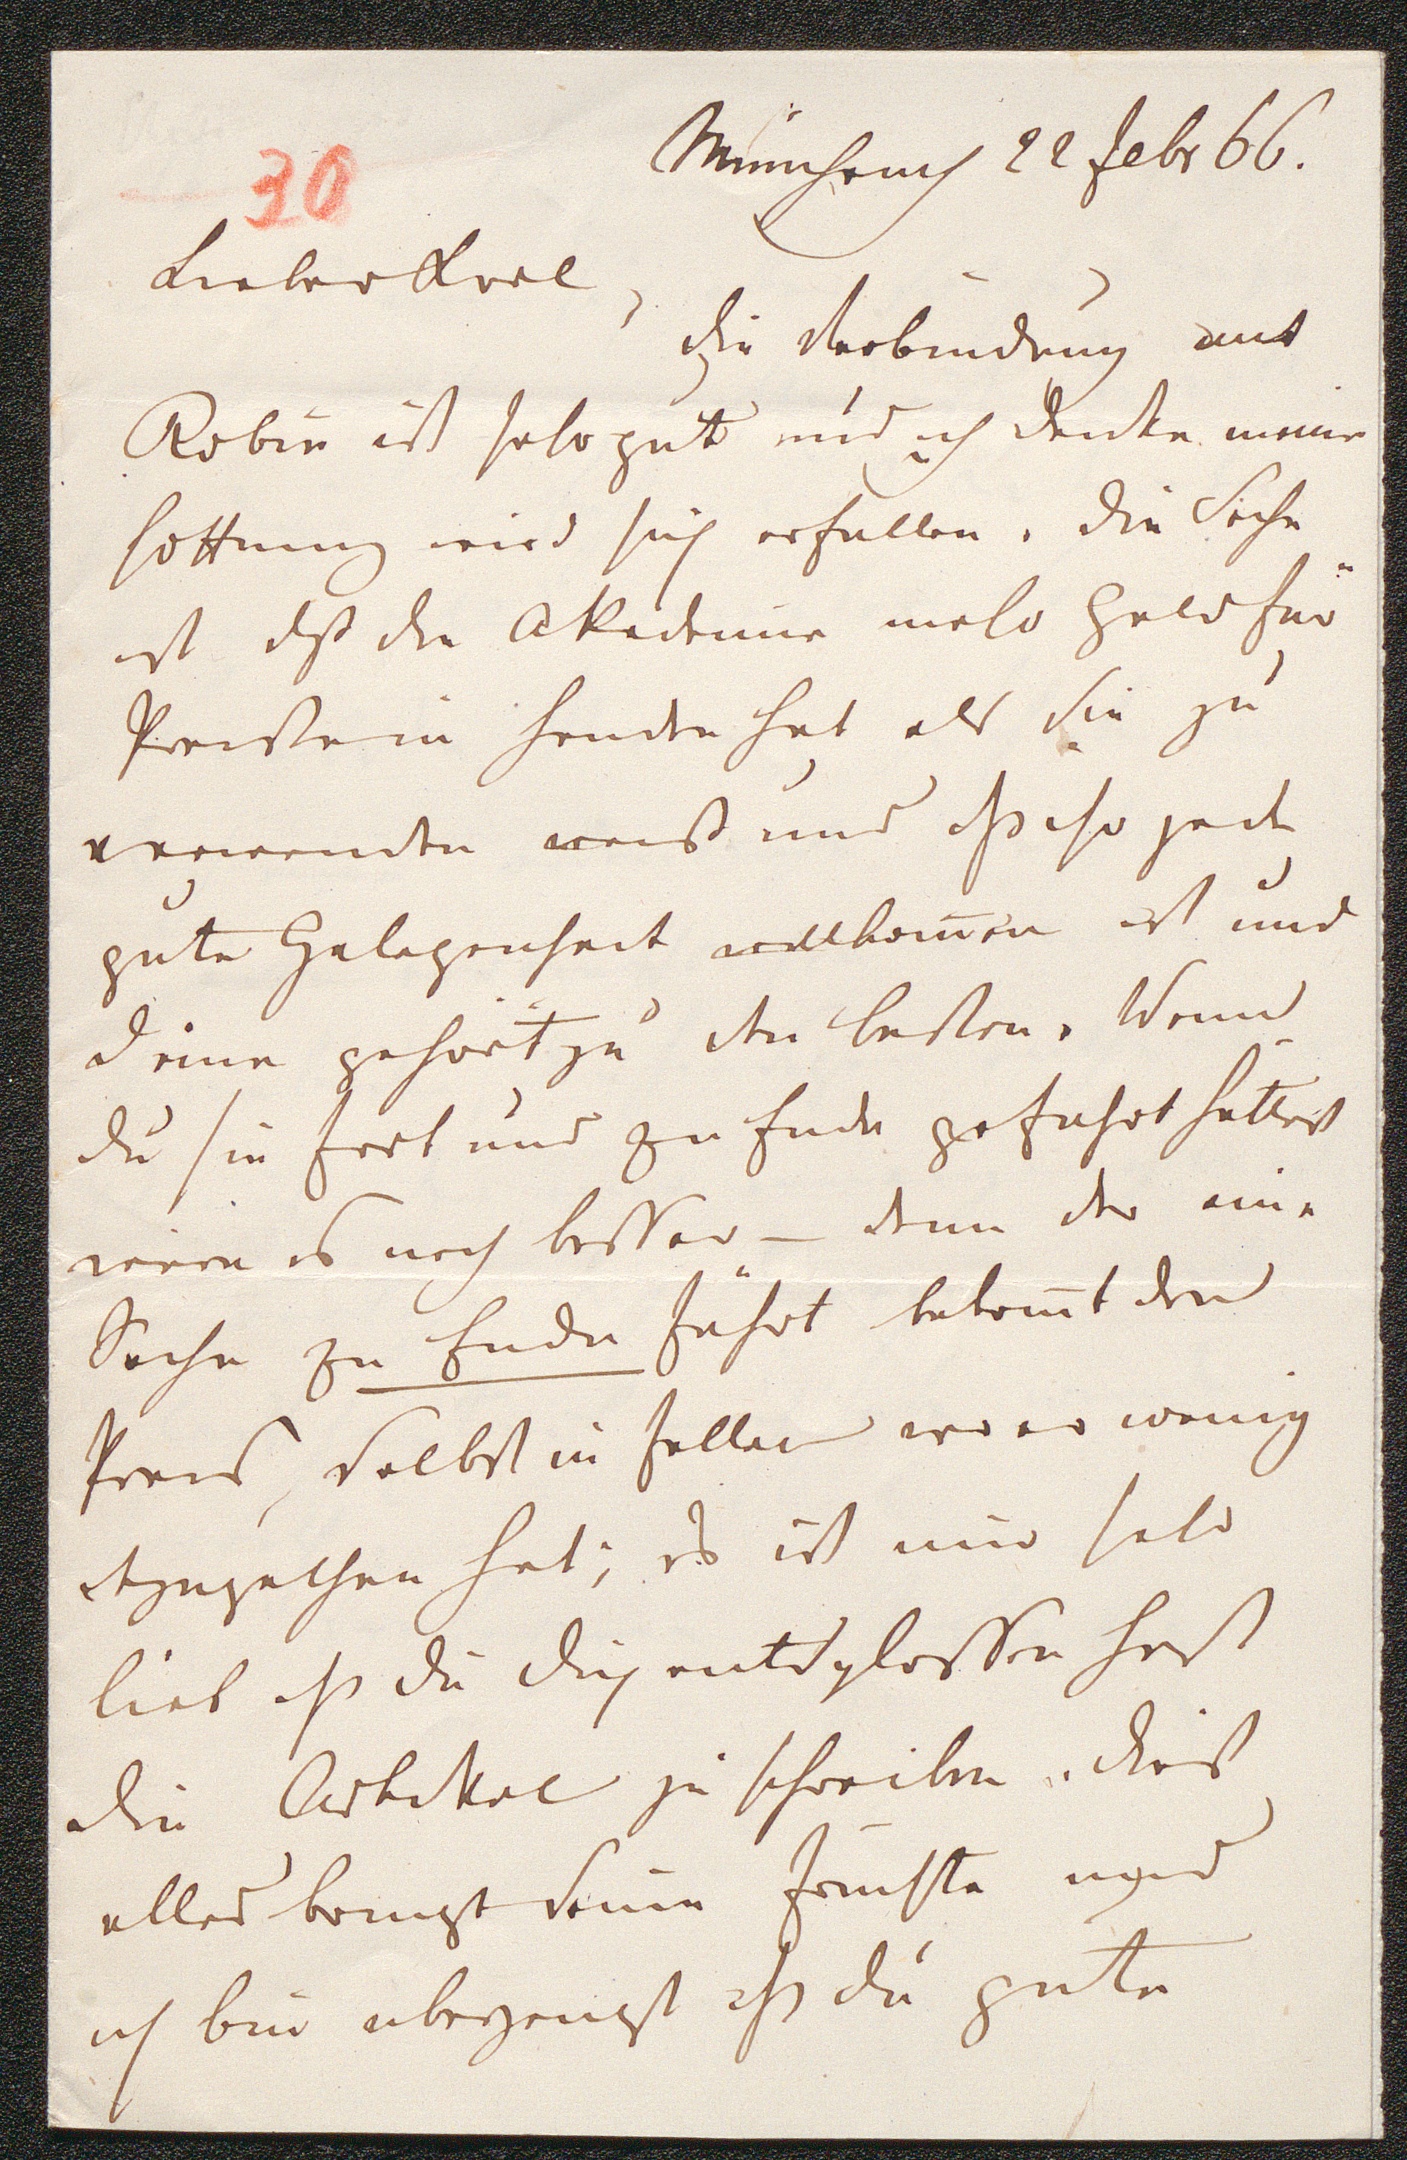 München 22 Febr 66.
30
Lieber Karl,
Die Verbindung mit
Robin ist sehr gut und ich denke meine
Hoffnung wird sich erfullen. Die Sache
ist daß die Akademie mehr Geld für
Preiße in Handen hat als Sie zu
verwenden weiß und daß ihr jede
gute Gelegenheit willkom̅en ist und
deine gehört zu den besten. Wenn
du sie fort und zu Ende gefuhrt hattest
wäre es noch besser – denn der eine
Sache zu Ende führt bekom̅t den
Preis, Selbst in Fallen wo er wenig
dazugethan hat; Es ist mir sehr
lieb daß du dich entschlossen hast
die Artikel zu schreiben. dieß
alles bringt Seine Fruchte und
ich bin uberzeugt daß du gute